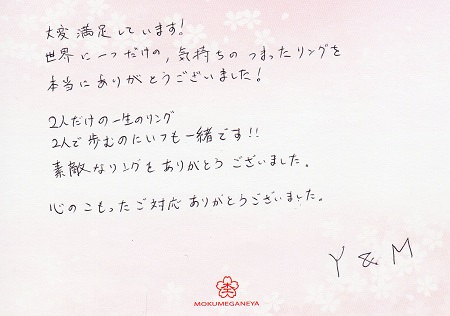 大変満足しています!
世界に一つだけの,気持ちのつまったリングを
本当にありがとうございました!
2人だけの一生のリング
2人で歩むのにいつも一緒です!!
素敵なリングをありがとうございました。
心のこもったご対応ありがとうございました。
Y & M
MOKUMEGANEYA